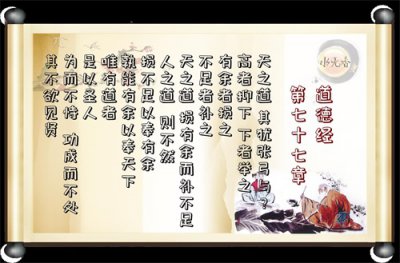 道德经
第七十七章
天之道 其犹张弓与?
高者抑下 下者举之
有余者损之
不足者补之
天之道 损有余而补不足
人之道 则不然
损不足以奉有余
孰能有余以奉天下
唯有道者
是以圣人
为而不恃 功成而不处
其不欲见贤